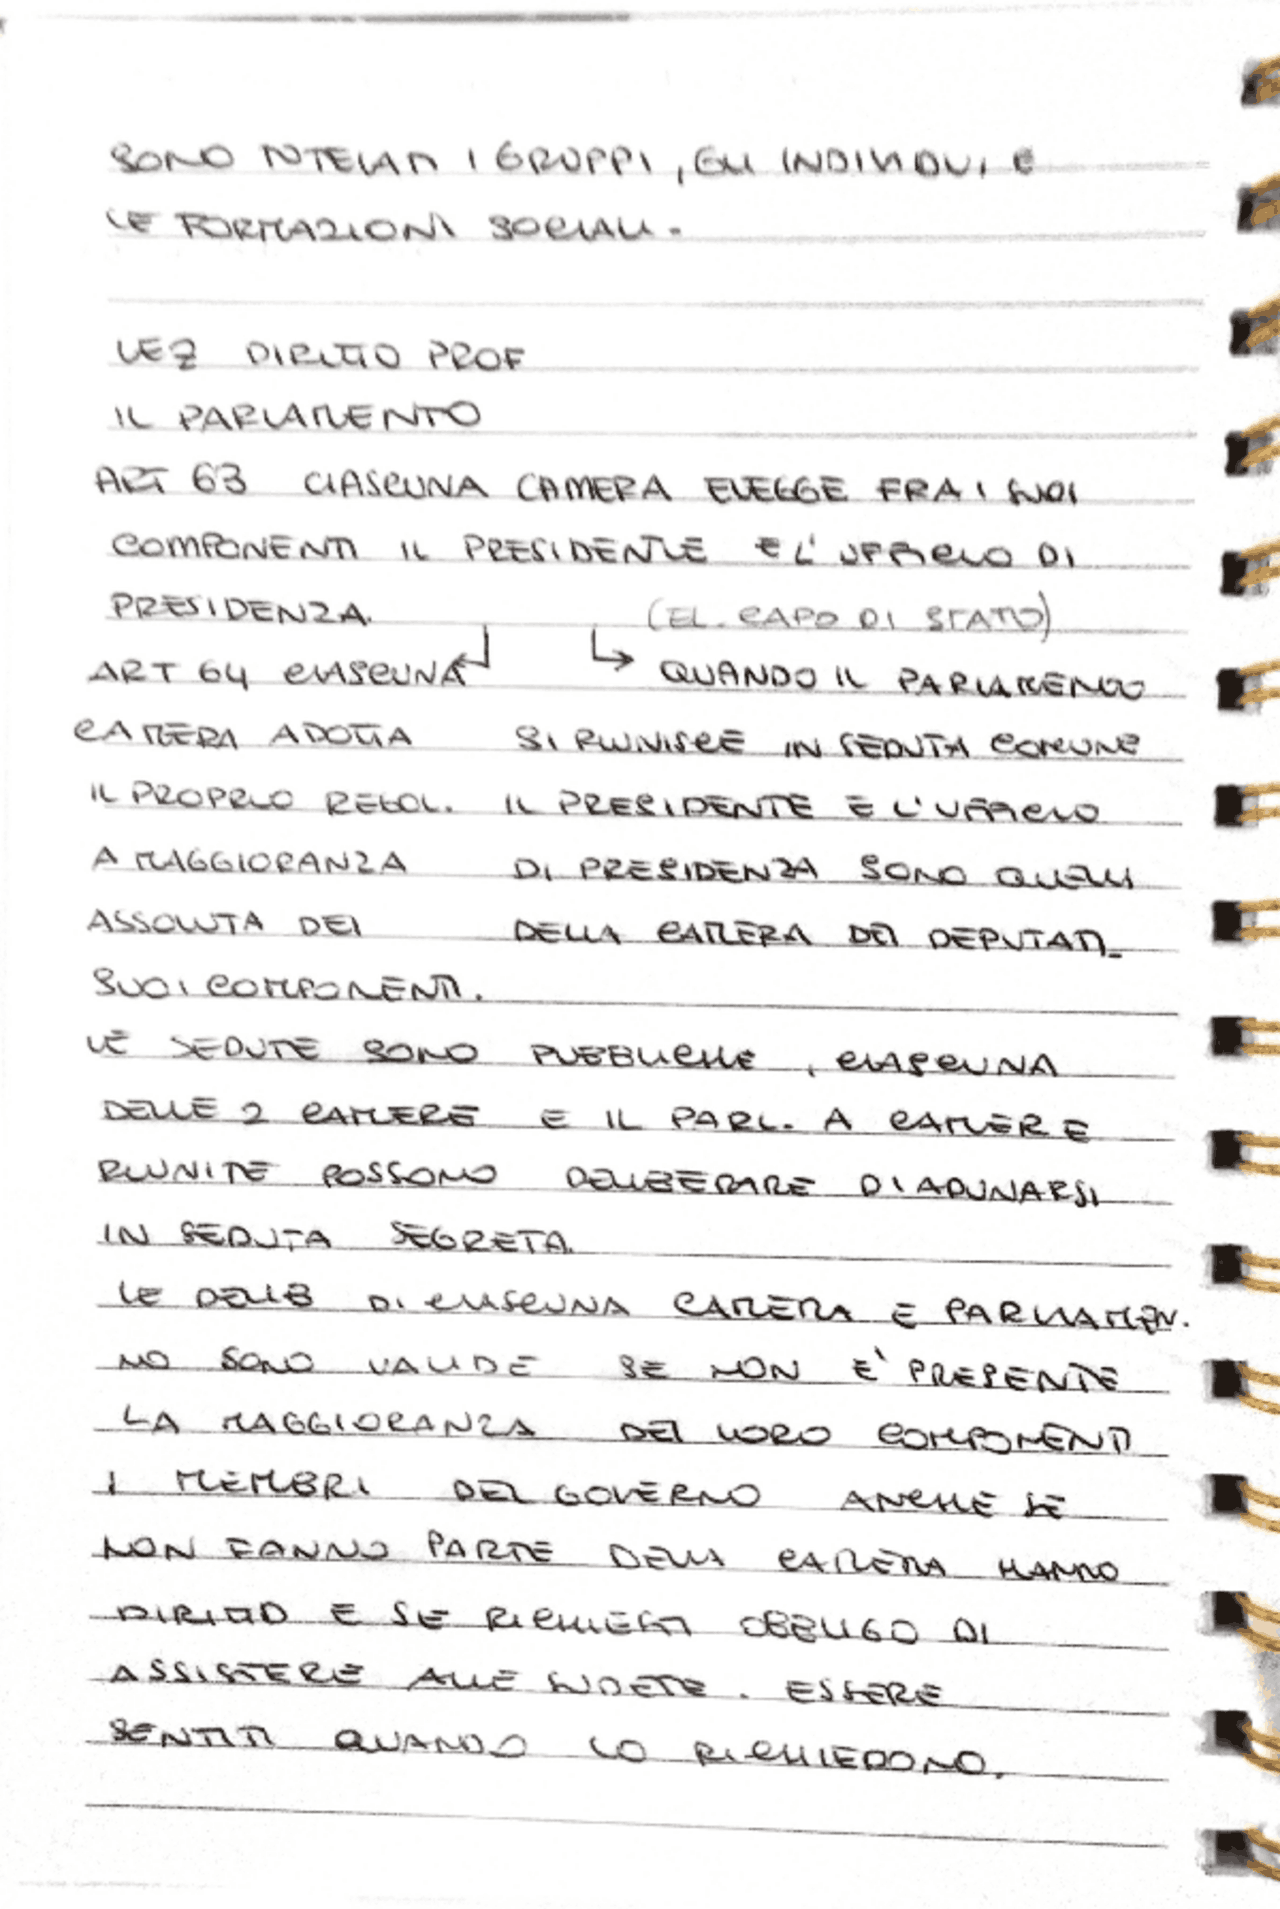 SONO TUTELATI I GRUPPI, GLI INDIVIDUI E
LE FORMAZIONI SOCIALI.
LEZ DIRITTO PROF
IL PARLAMENTO
ART 63 CIASCUNA CAMERA ELEGGE FRA I SUOI
COMPONENTI IL PRESIDENTE E L'UFFICIO DI
PRESIDENZA. (EL. CAPO DI STATO)
ART 64 CIASCUNA ↲ ↳ QUANDO IL PARLAMENTO
CAMERA ADOTTA SI RIUNISCE IN SEDUTA COMUNE
IL PROPRIO REGOL. IL PRESIDENTE E L'UFFICIO
A MAGGIORANZA DI PRESIDENZA SONO QUELLI
ASSOLUTA DEI DELLA CAMERA DEI DEPUTATI.
SUOI COMPONENTI.
LE SEDUTE SONO PUBBLICHE, CIASCUNA
DELLE 2 CAMERE E IL PARL. A CAMERE
RIUNITE POSSONO DELIBERARE DI ADUNARSI
IN SEDUTA SEGRETA.
LE DELIB DI CIASCUNA CAMERA E PARLAMEN.
NO SONO VALIDE SE NON E' PRESENTE
LA MAGGIORANZA DEI LORO COMPONENTI
I MEMBRI DEL GOVERNO ANCHE SE
NON FANNO PARTE DELLA CAMERA HANNO
DIRITTO E SE RICHIESTI OBBLIGO DI
ASSISTERE ALLE SUDETE. ESSERE
SENTITI QUANDO LO RICHIEDONO.